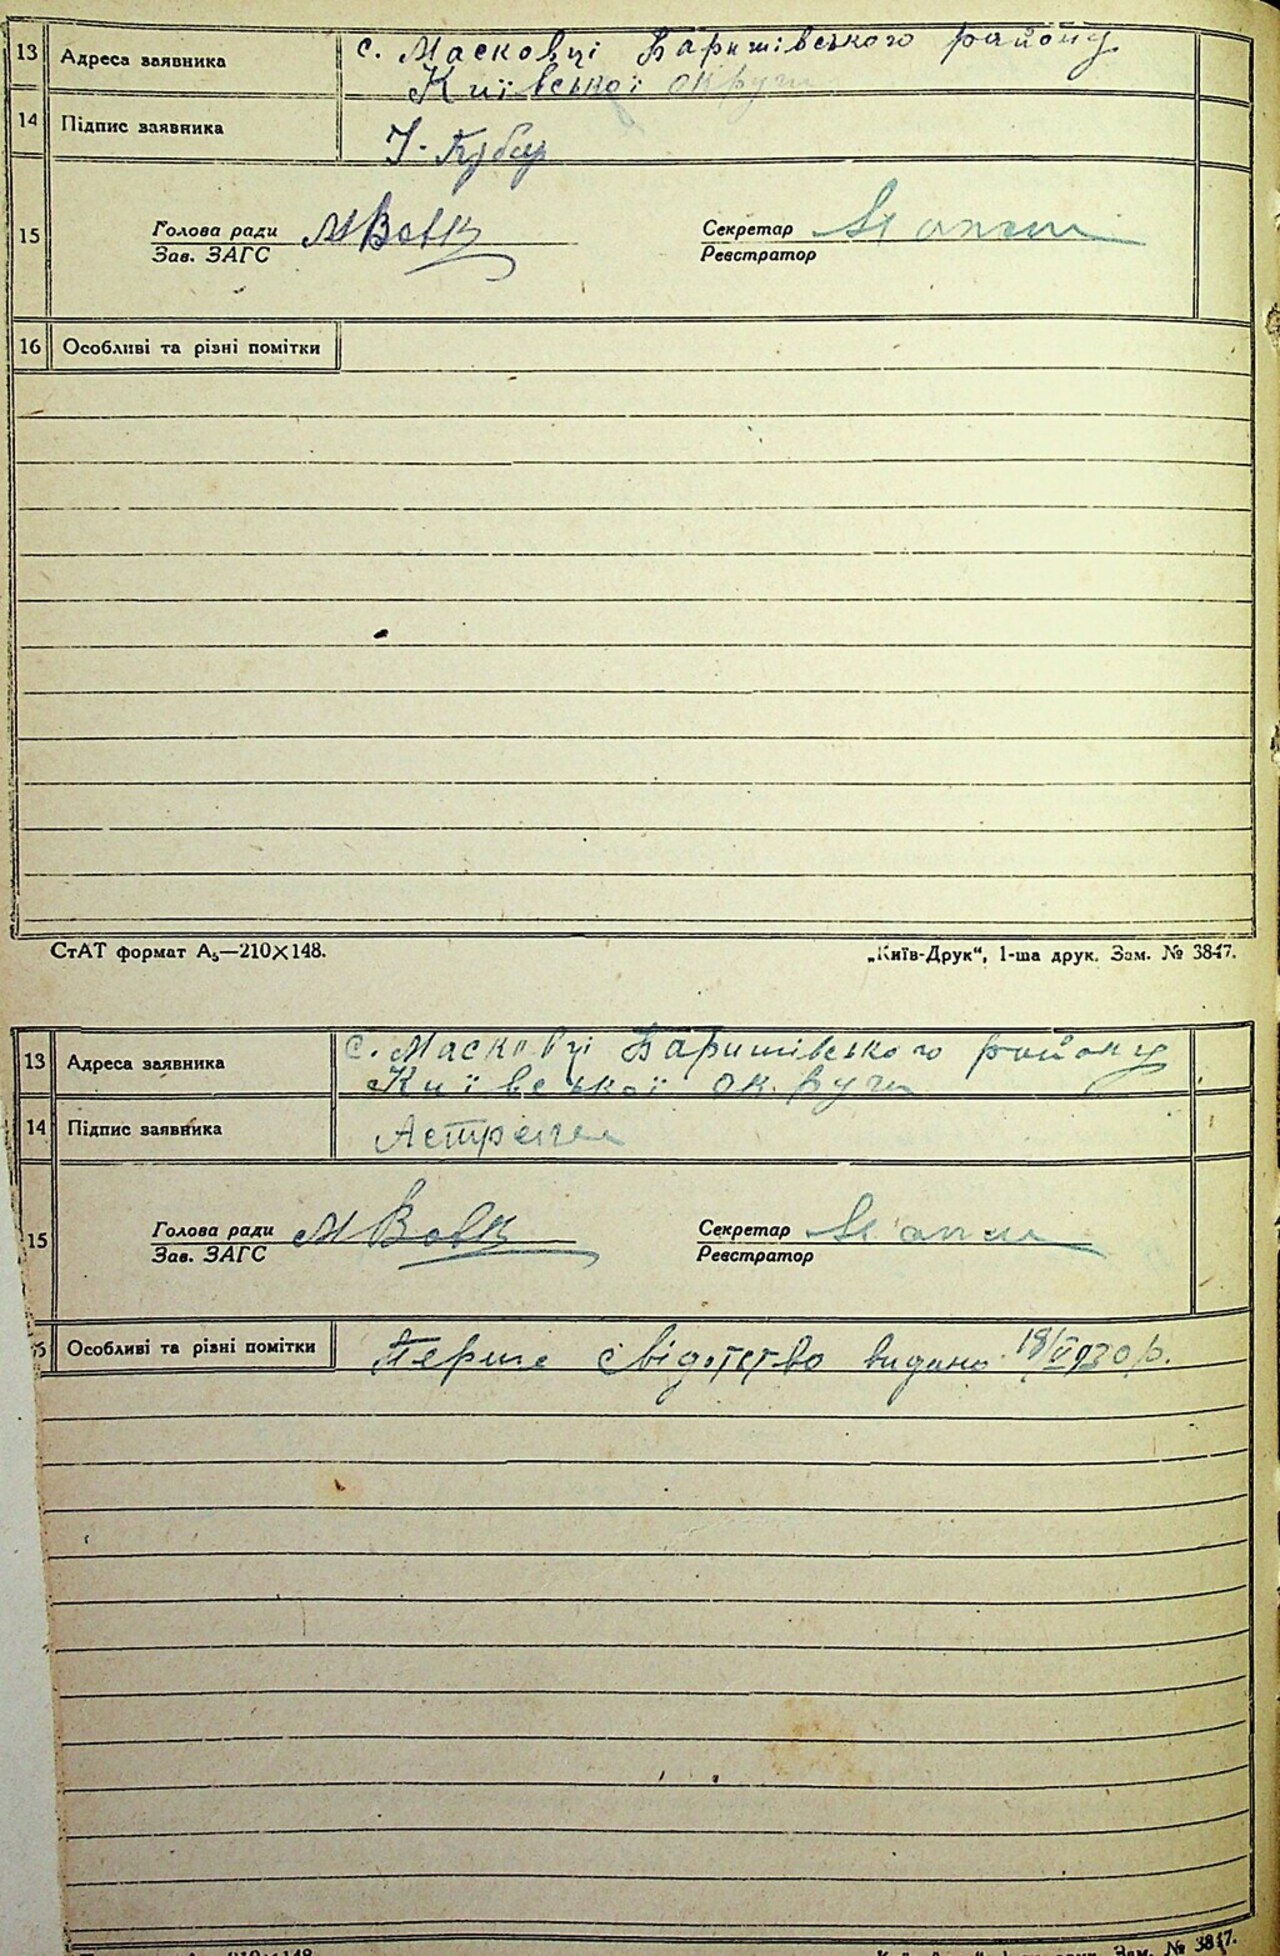 13 Адреса заявника с. Масковці Баришівського району
Київської округи
14 Підпис заявника
15 Голова ради МВовк Секретар
Зав. ЗАГС Реєстратор
16 Особливі та різні помітки
СтАТ формат А₅—210×148. „Київ-Друк“, 1-ша друк. Зам. № 3847.
13 Адреса заявника с. Масковці Баришівського району
Київської округи
14 Підпис заявника
15 Голова ради МВовк Секретар
Зав. ЗАГС Реєстратор
Особливі та різні помітки Перше свідотство видано 18/VI 930 р.
Зам. № 3847.